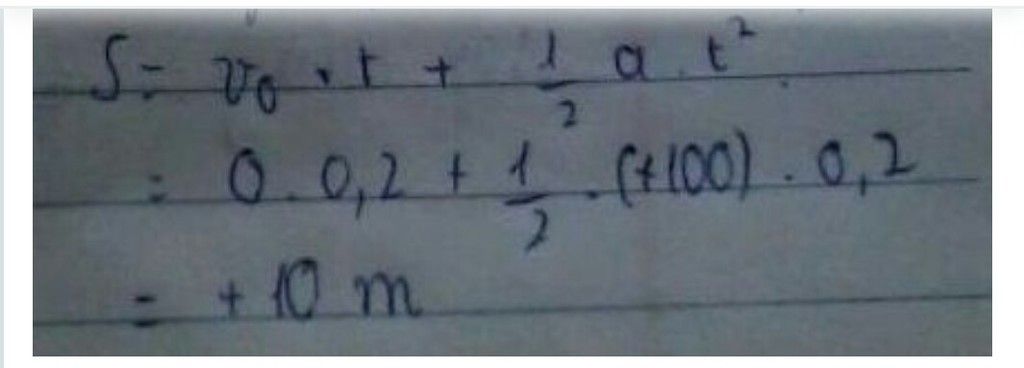 S = v₀ . t + 1/2 a . t²
= 0 . 0,2 + 1/2 . (+100) . 0,2
= + 10 m